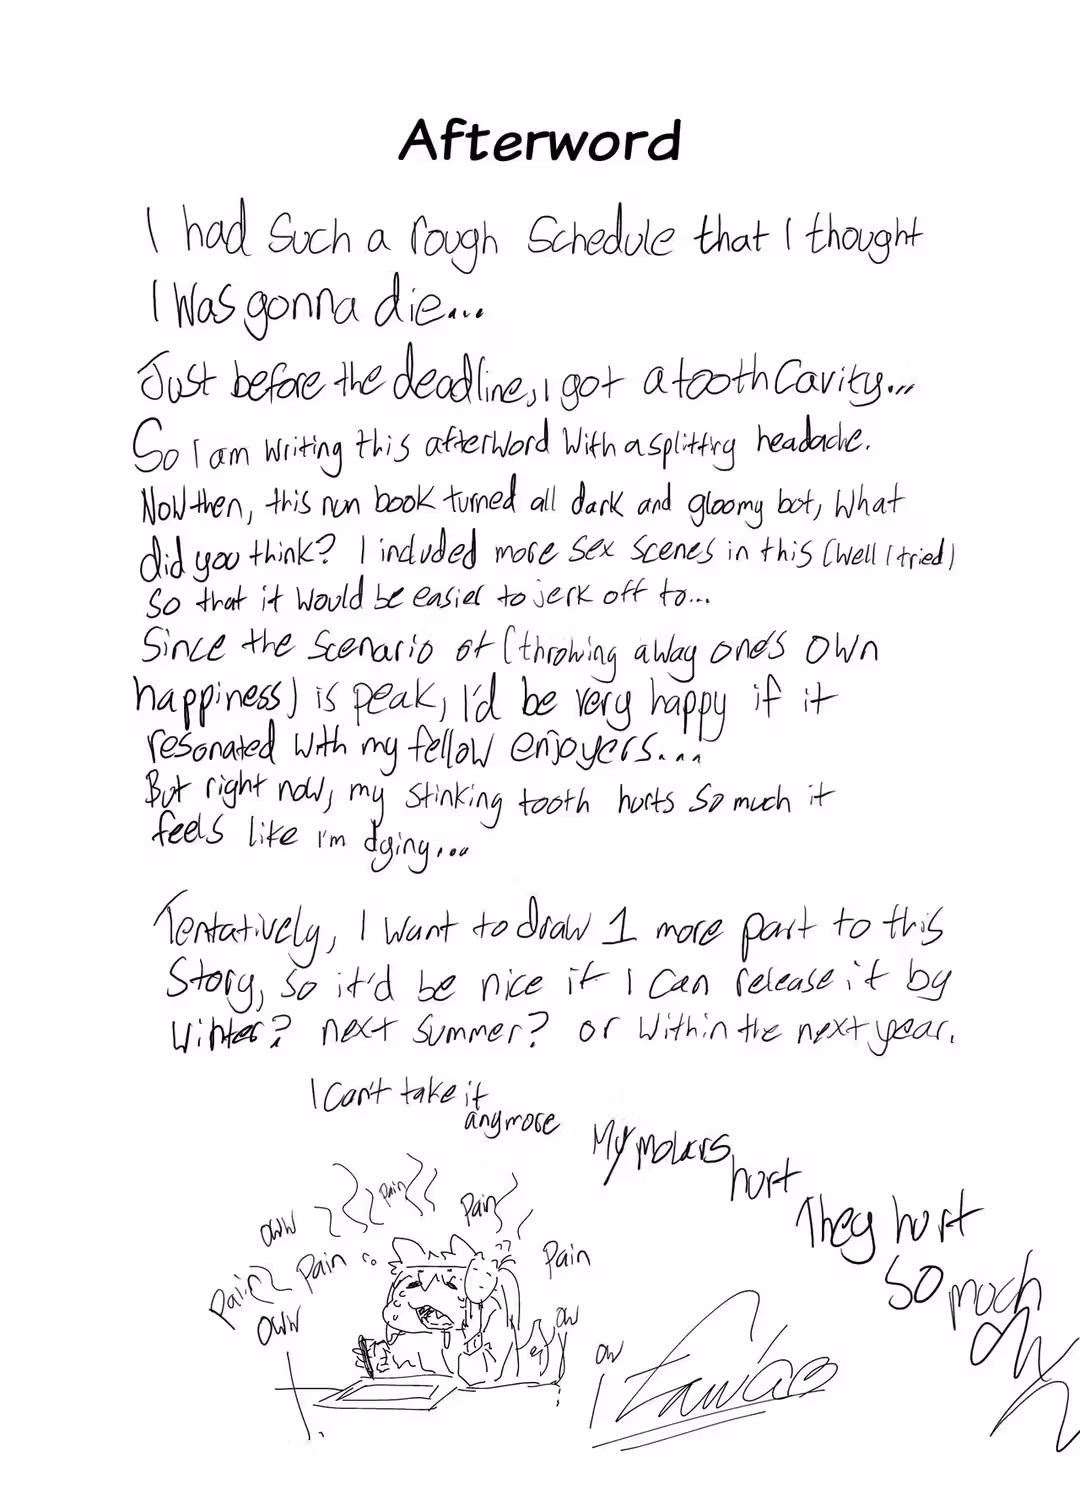 Afterword
I had such a rough schedule that I thought
I was gonna die...
Just before the deadline, I got a tooth cavity...
So I am writing this afterword with a splitting headache.
Now then, this nun book turned all dark and gloomy but, what
did you think? I included more sex scenes in this (well I tried)
so that it would be easier to jerk off to...
Since the scenario of (throwing away one's own
happiness) is peak, I'd be very happy if it
resonated with my fellow enjoyers...
But right now, my stinking tooth hurts so much it
feels like I'm dying...
Tentatively, I want to draw 1 more part to this
story, so it'd be nice if I can release it by
winter? next summer? or within the next year.
I can't take it
anymore
My molars
hurt
They hurt
so much
OW
Pain
Oww
Pain
Pain
Pain
Pain
Oww
OW
OW